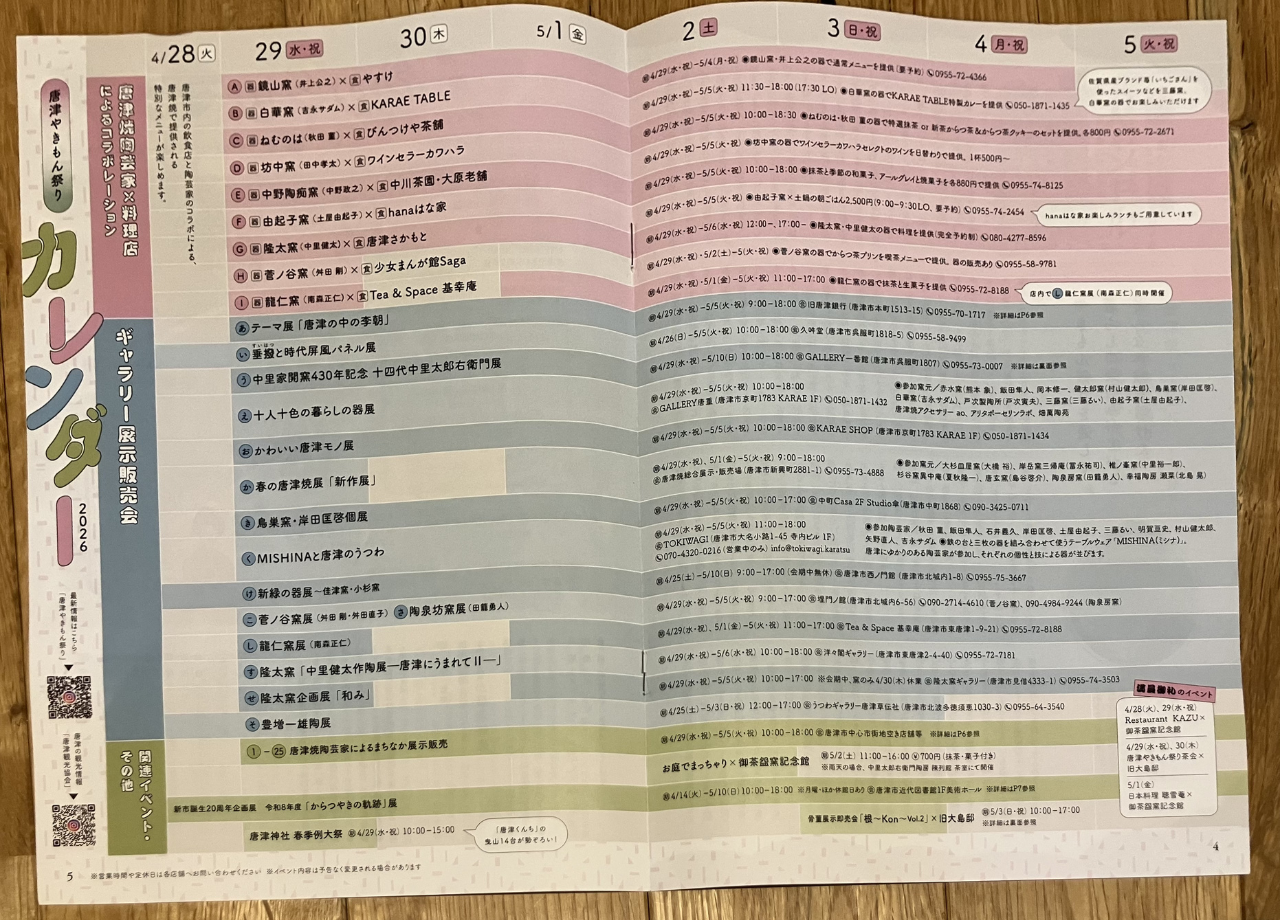 4/28 火
29 水・祝
30 木
5/1 金
2 土
3 日・祝
4 月・祝
5 火・祝
唐津やきもん祭り
カレンダー
2026
最新情報はこちら
「唐津やきもん祭り」
唐津の観光情報
「唐津観光協会」
唐津焼陶芸家×料理店
によるコラボレーション
唐津市内の飲食店と陶芸家のコラボによる、
唐津焼で提供される
特別なメニューが楽しめます。
A 器 鏡山窯(井上公之)×食 やすけ
㊐4/29(水・祝)-5/4(月・祝) ◉鏡山窯・井上公之の器で通常メニューを提供(要予約) 0955-72-4366
B 器 白華窯(吉永サダム)×食 KARAE TABLE
5/5(火・祝) 11:30-18:00(17:30 LO) ◉白華窯の器でKARAE TABLE特製カレーを提供 050-1871-1435
佐賀県産ブランド苺「いちごさん」を
使ったスイーツなどを三藤窯、
白華窯の器でお楽しみいただけます
C 器 ねむのは(秋田 菫)×食 びんつけや茶舗
4/29(水・祝)-5/5(火・祝) 10:00-18:30 ◉ねむのは・秋田 菫の器で特選抹茶 or 新茶からつ茶&からつ茶クッキーのセットを提供。各800円 0955-72-2671
D 器 坊中窯(田中孝太)×食 ワインセラーカワハラ
4/29(水・祝)-5/5(火・祝) ◉坊中窯の器でワインセラーカワハラセレクトのワインを日替わりで提供。1杯500円〜
E 器 中野陶痴窯(中野政之)×食 中川茶園・大原老舗
4/29(水・祝)-5/5(火・祝) 10:00-18:00 ◉抹茶と季節の和菓子、アールグレイと焼菓子を各880円で提供 0955-74-8125
F 器 由起子窯(土屋由起子)×食 hanaはな家
4/29(水・祝)-5/5(火・祝) ◉由起子窯×土鍋の朝ごはん2,500円(9:00-9:30LO、要予約) 0955-74-2454
hanaはな家お楽しみランチもご用意しています
G 器 隆太窯(中里健太)×食 唐津さかもと
4/29(水・祝)-5/6(水・祝) 12:00-、17:00- ◉隆太窯・中里健太の器で料理を提供(完全予約制) 080-4277-8596
H 器 菅ノ谷窯(舛田 剛)×食 少女まんが館Saga
4/29(水・祝)-5/2(土)-5(火・祝) ◉菅ノ谷窯の器でからつ茶プリンを喫茶メニューで提供。器の販売あり 0955-58-9781
I 器 龍仁窯(南森正仁)×食 Tea & Space 基幸庵
4/29(水・祝)、5/1(金)-5(火・祝) 11:00-17:00 ◉龍仁窯の器で抹茶と生菓子を提供 0955-72-8188
店内で し 龍仁窯展(南森正仁)同時開催
ギャラリー展示販売会
あ テーマ展「唐津の中の李朝」
4/29(水・祝)-5/5(火・祝) 9:00-18:00 旧唐津銀行(唐津市本町1513-15) 0955-70-1717 ※詳細はP6参照
い 垂撥と時代屏風パネル展
すいはつ
4/26(日)-5/5(火・祝) 10:00-18:00 久吽堂(唐津市呉服町1818-5) 0955-58-9499
う 中里家開窯430年記念 十四代中里太郎右衛門展
4/29(水・祝)-5/10(日) 10:00-18:00 GALLERY一番館(唐津市呉服町1807) 0955-73-0007 ※詳細は裏面参照
え 十人十色の暮らしの器展
4/29(水・祝)-5/5(火・祝) 10:00-18:00
GALLERY唐重(唐津市京町1783 KARAE 1F) 050-1871-1432
◉参加窯元/赤水窯(熊本 象)、飯田隼人、岡本修一、健太郎窯(村山健太郎)、鳥巣窯(岸田匡啓)、
白華窯(吉永サダム)、戸次製陶所(戸次寛夫)、三藤窯(三藤るい)、由起子窯(土屋由起子)、
唐津焼アクセサリー ao、アリタポーセリンラボ、畑萬陶苑
お かわいい唐津モノ展
4/29(水・祝)-5/5(火・祝) 10:00-18:00 KARAE SHOP (唐津市京町1783 KARAE 1F) 050-1871-1434
か 春の唐津焼展「新作展」
4/29(水・祝)、5/1(金)-5(火・祝) 9:00-18:00
唐津焼総合展示・販売場(唐津市新興町2881-1) 0955-73-4888
◉参加窯元/大杉皿屋窯(大橋 裕)、岸岳窯三帰庵(冨永祐司)、椎ノ峯窯(中里裕一郎)、
杉谷窯異中庵(夏秋隆一)、唐玄窯(島谷啓介)、陶泉房窯(田籠勇人)、幸福陶房 瀬菜(北島 晃)
き 鳥巣窯・岸田匡啓個展
4/29(水・祝)-5/5(火・祝) 10:00-17:00 中町Casa 2F Studio傘(唐津市中町1868) 090-3425-0711
く MISHINAと唐津のうつわ
4/29(水・祝)-5/5(火・祝) 11:00-18:00
TOKIWAGI(唐津市大名小路1-45 寺内ビル 1F)
070-4320-0216(営業中のみ) info@tokiwagi.karatsu
◉参加陶芸家/秋田 菫、飯田隼人、石井義久、岸田匡啓、土屋由起子、三藤るい、明賀亘史、村山健太郎、
矢野直人、吉永サダム ◉鉄の台と三枚の器を組み合わせて使うテーブルウェア「MISHINA(ミシナ)」。
唐津にゆかりのある陶芸家が参加し、それぞれの個性と技による器が並びます。
け 新緑の器展〜住津窯・小杉窯
4/25(土)-5/10(日) 9:00-17:00(会期中無休) 唐津市西ノ門館(唐津市北城内1-8) 0955-75-3667
こ 菅ノ谷窯展(舛田 剛・舛田直子) さ 陶泉坊窯展(田籠勇人)
4/29(水・祝)-5/5(火・祝) 9:00-17:00 埋門ノ館(唐津市北城内6-56) 090-2714-4610(菅ノ谷窯)、090-4984-9244(陶泉房窯)
し 龍仁窯展(南森正仁)
4/29(水・祝)、5/1(金)-5(火・祝) 11:00-17:00 Tea & Space 基幸庵(唐津市東唐津1-9-21) 0955-72-8188
す 隆太窯「中里健太作陶展―唐津にうまれてⅡ―」
4/29(水・祝)-5/6(水・祝) 10:00-18:00 洋々閣ギャラリー(唐津市東唐津2-4-40) 0955-72-7181
せ 隆太窯企画展「和み」
4/29(水・祝)-5/5(火・祝) 10:00-17:00 ※会期中、窯のみ4/30(木)休業 隆太窯ギャラリー(唐津市見借4333-1) 0955-74-3503
そ 豊増一雄陶展
4/25(土)-5/3(日・祝) 12:00-17:00 うつわギャラリー唐津草伝社(唐津市北波多徳須恵1030-3) 0955-64-3540
関連イベント・
その他
1-25 唐津焼陶芸家によるまちなか展示販売
4/29(水・祝)-5/5(火・祝) 10:00-18:00 唐津市中心市街地空き店舗等 ※詳細はP6参照
お庭でまっちゃり×御茶盌窯記念館
5/2(土) 11:00-16:00 ¥700円(抹茶・菓子付き)
※雨天の場合、中里太郎右衛門陶房 陳列館 茶室にて開催
新市誕生20周年企画展 令和8年度「からつやきの軌跡」展
4/14(火)-5/10(日) 10:00-18:00 ※月曜・ほか休館日あり 唐津市近代図書館1F美術ホール ※詳細はP7参照
唐津神社 春季例大祭 4/29(水・祝) 10:00-15:00
「唐津くんち」の
曳山14台が勢ぞろい!
骨董展示即売会「根〜Kon〜Vol.2」×旧大島邸
5/3(日・祝) 10:00-17:00
※詳細は裏面参照
のイベント
4/28(火)、29(水・祝)
Restaurant KAZU×
御茶盌窯記念館
4/29(水・祝)、30(木)
唐津やきもん祭り茶会×
旧大島邸
5/1(金)
日本料理 聴雪庵×
御茶盌窯記念館
5
※営業時間や定休日は各店舗へお問い合わせください ※イベント内容は予告なく変更される場合があります
4